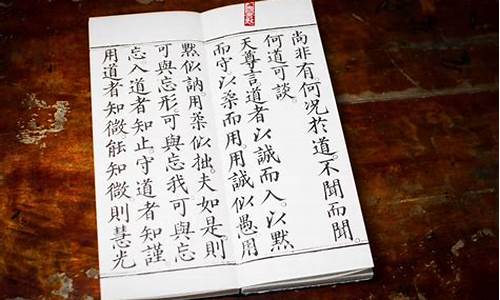 尚非有何況於道。不聞而聞。
何道可談。
天尊言道者以誠而入。以默
而守以柔而用。用誠似愚用
默似訥用柔似拙。夫如是則
可與忘形可與忘我可與忘
忘入道者知止守道者知謹
用道者知微。能知微則慧光